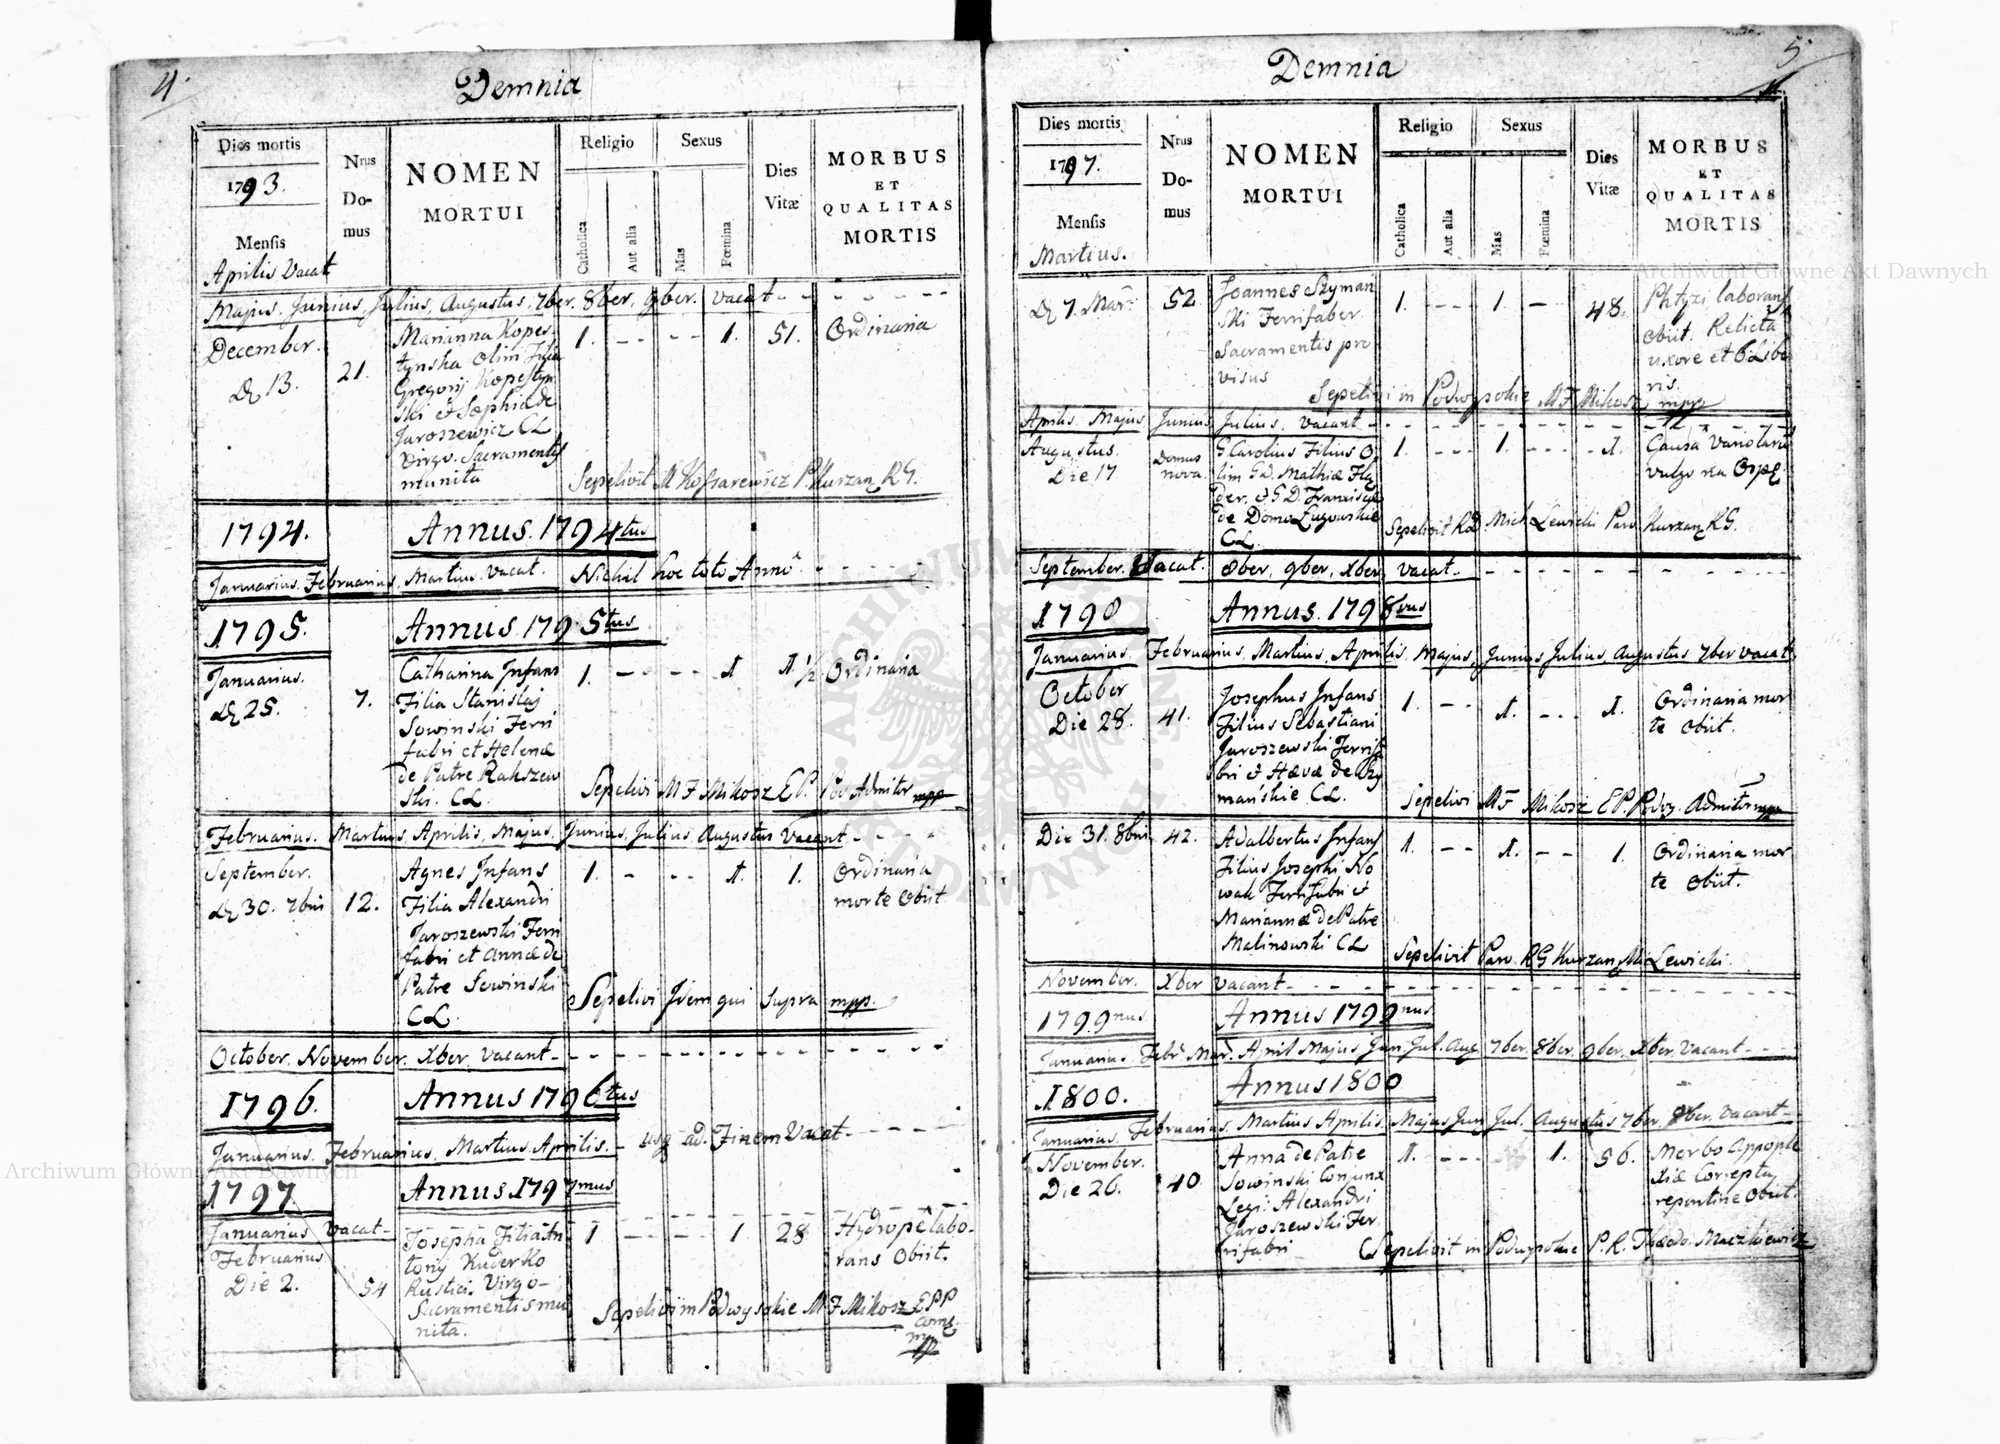 4.
Demnia
Dies mortis
1793.
Mensis
Aprilis Vacat
Nrus
Do-
mus
NOMEN
MORTUI
Religio
Catholica
Aut alia
Sexus
Mas
Fœmina
Dies
Vitæ
MORBUS
ET
QUALITAS
MORTIS
Majus, Junius, Julius, Augustus, 7ber. 8ber. 9ber. vacat - - - - - - -
December.
13.
21.
Marianna Kopes
tynska olim Filia
Gregorij Kopestyn
ski et Sophiæ de
Jaroszewicz CL
Virgo. Sacramentis
munita
1. - - - - 1. 51. Ordinaria
Sepelivit M P. Kurzan RG.
1794. Annus. 1794tus
Januarius. Februarius. Martius. Vacat. Nichil hoc toto Anno - - - - -
1795. Annus. 1795tus
Januarius.
25.
7.
Catharina Infans
Filia Stanislaj
Sowinski Ferri
fabri et Helenæ
de Patre Rakszew
ski. CL
1. - - - - 1 1 1/2 Ordinaria
Sepelivi M F Mikosz E P. Admitor mpp
Februarius. Martius, Aprilis, Majus, Junius, Julius, Augustus Vacant - - - -
September.
30. 7bris
12.
Agnes Infans
Filia Alexandri
Jaroszewski Ferri
fabri et Annæ de
Patre Sowinski
CL
1. - - - 1. 1. Ordinaria
morte obiit.
Sepelivi Idem qui supra mpp.
October. November. Xber. vacant - - - - - - - - - -
1796. Annus 1796tus
Januarius. Februarius, Martius, Aprilis. - usq ad. Finem Vacat - - - - -
1797 Annus. 1797mus
Januarius vacat -
Februarius
Die 2.
54
Josepha Filia An
tonij Kuderko
Rustici. Virgo -
Sacramentis mu
nita.
1 - - - - 1. 28 Hydrope labo-
rans Obiit.
Sepelivi in Podwysokie M F Mikosz EPP
mpp
5.
Demnia
Dies mortis
1797.
Mensis
Martius.
Nrus
Do-
mus
NOMEN
MORTUI
Religio
Catholica
Aut alia
Sexus
Mas
Fœmina
Dies
Vitæ
MORBUS
ET
QUALITAS
MORTIS
7. Mar:
52
Joannes Szyman
ski Ferrifaber
Sacramentis pro
visus
1. - - 1. - 48. Phtyzi laborans
obiit. Relicta
uxore et 6 Libe
ris.
Sepelivi in Podwysokie M F Mikosz mpp
Aprilis. Majus Junius Julius. vacant - - - - - - - - - -
Augustus.
Die 17
Domus
nova.
G. Carolus Filius O
lim G D. Mathiæ Fla
der. et G D. Francisca
de Domo Lugowskie
CL
1. - - 1. - - 1. Causa Variolarum
vulgo na Ospę
Sepelivit RD Mich Lewicki Paro. Kurzan RG.
September. Vacat. 8ber, 9ber, Xber, vacat - - - - - - - -
1798 Annus. 1798vus
Januarius. Februarius, Martius, Aprilis, Majus, Junius Julius, Augustus 7ber vacat.
October
Die 28.
41.
Josephus Infans
Filius Sebastiani
Jaroszewski Ferrifa
bri et Hævæ de Szy
manskie CL.
1. - - 1. - - - 1. Ordinaria mor
te obiit.
Sepelivi M F Mikosz E P. Podwy. Admitor mpp
Die 31. 8bris 42.
Adalbertus Infans
Filius Josephi No
wak Ferrifabri et
Mariannæ de Patre
Malinowski CL
1. - - 1. - - 1. Ordinaria mor
te obiit.
Sepelivit Paro. RG Kurzan. Mi Lewicki.
November. Xber vacant - - - - - - - - - -
1799nus Annus 1799nus
Januarius Febr. Mar. April Majus Jun. Jul. Aug 7ber 8ber. 9ber. Xber. Vacant - - - -
1800. Annus 1800
Januarius. Februarius. Martius Aprilis. Majus Jun Jul. Augustus 7ber. 8ber. vacant -
November.
Die 26.
40
Anna de Patre
Sowinski Conjunx
Legi: Alexandri
Jaroszewski Fer.
rifabri
1. - - - 1. 56. Morbo Appople
xiæ Correpta
repentine obiit.
Sepelivit in Podwysokie P. R. Theodo. Maczkiewicz
Archiwum Główne Akt Dawnych
Archiwum Główne Akt Dawnych
ARCHIWUM GŁÓWNE AKT DAWNYCH